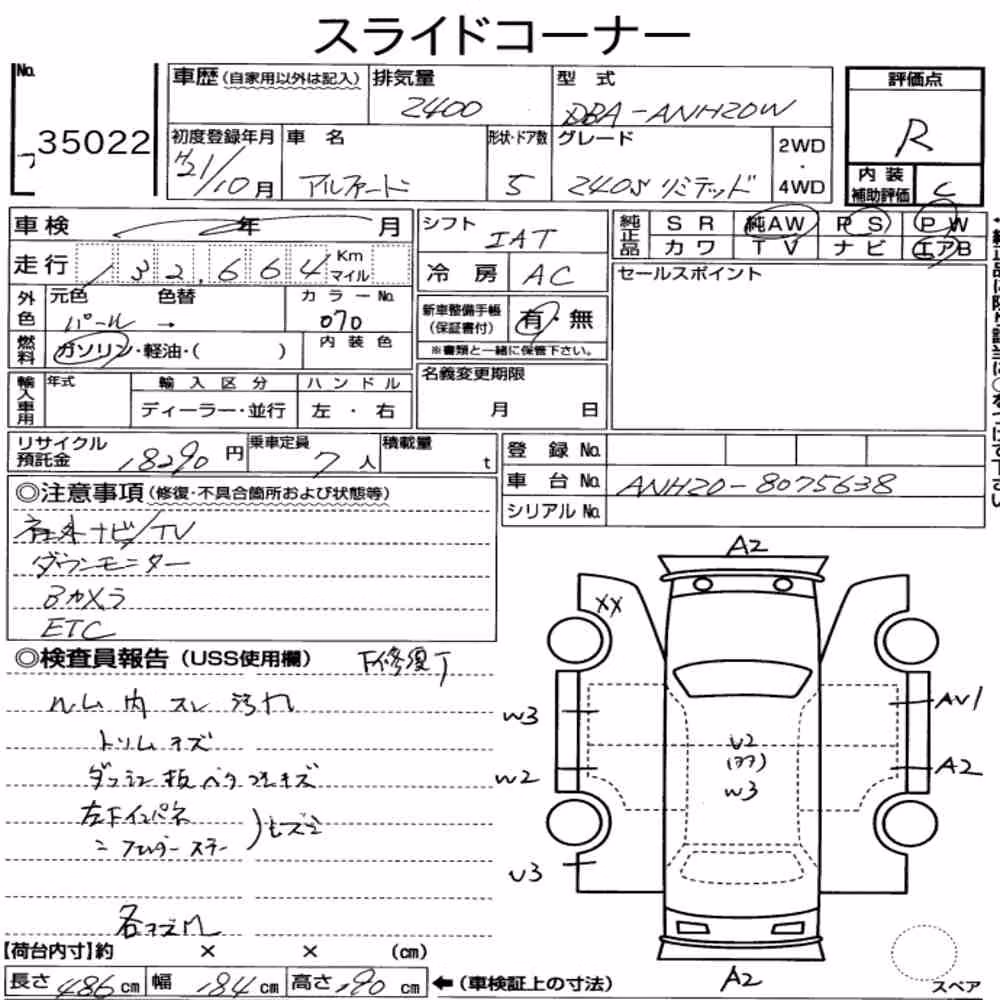 スライドコーナー
No. 35022
車歴 (自家用以外は記入)
排気量 2400
型式 DBA-ANH20W
評価点 R
内装補助評価 C
初度登録年月 H21/10月
車名 アルファード
形状・ドア数 5
グレード 240S リミテッド
2WD・4WD
車検 年 月
走行 132,664 Km マイル
シフト IAT
冷房 AC
純正品 SR 純AW PS PW
カワ TV ナビ エアB
セールスポイント
外色 元色 パール → 色替
カラーNo. 070
燃料 ガソリン・軽油・( )
内装色
新車整備手帳(保証書付) 有・無
※書類と一緒に保管下さい。
輸入車用 年式
輸入区分 ディーラー・並行
ハンドル 左・右
名義変更期限 月 日
リサイクル預託金 18290円
乗車定員 7人
積載量 t
登録No.
車台No. ANH20-8075638
シリアルNo.
◎注意事項(修復・不具合箇所および状態等)
社外ナビ/TV
ダウンモニター
Bカメラ
ETC
◎検査員報告(USS使用欄)
ルーム内 スレ 汚れ
トリムキズ
左Fインパネ
各キズ
A2
XX
W3
AV1
U2
W3
W2
A2
U3
A2
【荷台内寸】約 × × (cm)
長さ 486cm 幅 184cm 高さ 190cm ←(車検証上の寸法)
スペア